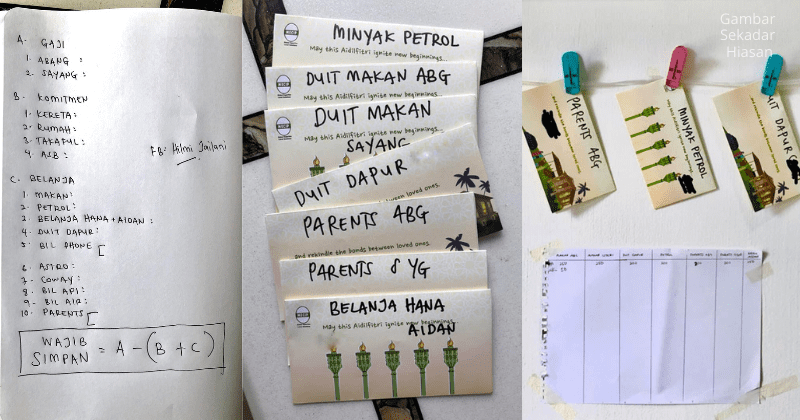 A. GAJI
1. ABANG :
2. SAYANG :
B. KOMITMEN
1. KERETA:
2. RUMAH:
3. TAKAFUL:
4. ASB:
FB: Hilmi Jailani
C. BELANJA
1. MAKAN:
2. PETROL:
3. BELANJA HANA + AIDAN :
4. DUIT DAPUR:
5. BIL PHONE [
6. ASTRO:
7. COWAY:
8. BIL API:
9. BIL AIR:
10. PARENTS [
WAJIB
SIMPAN = A - (B + C)
MINYAK PETROL
May this Aidilfitri ignite new beginnings...
DUIT MAKAN ABG
May this Aidilfitri ignite new beginnings...
DUIT MAKAN
May this Aidilfitri ignite new beginnings...
SAYANG
DUIT DAPUR
between loved ones.
PARENTS ABG
and rekindle the bonds between loved ones.
PARENTS SYG
BELANJA HANA
May this Aidilfitri ignite new beginnings...
AIDAN
Gambar
Sekadar
Hiasan
PARENTS ABG
MINYAK PETROL
DUIT DAPUR